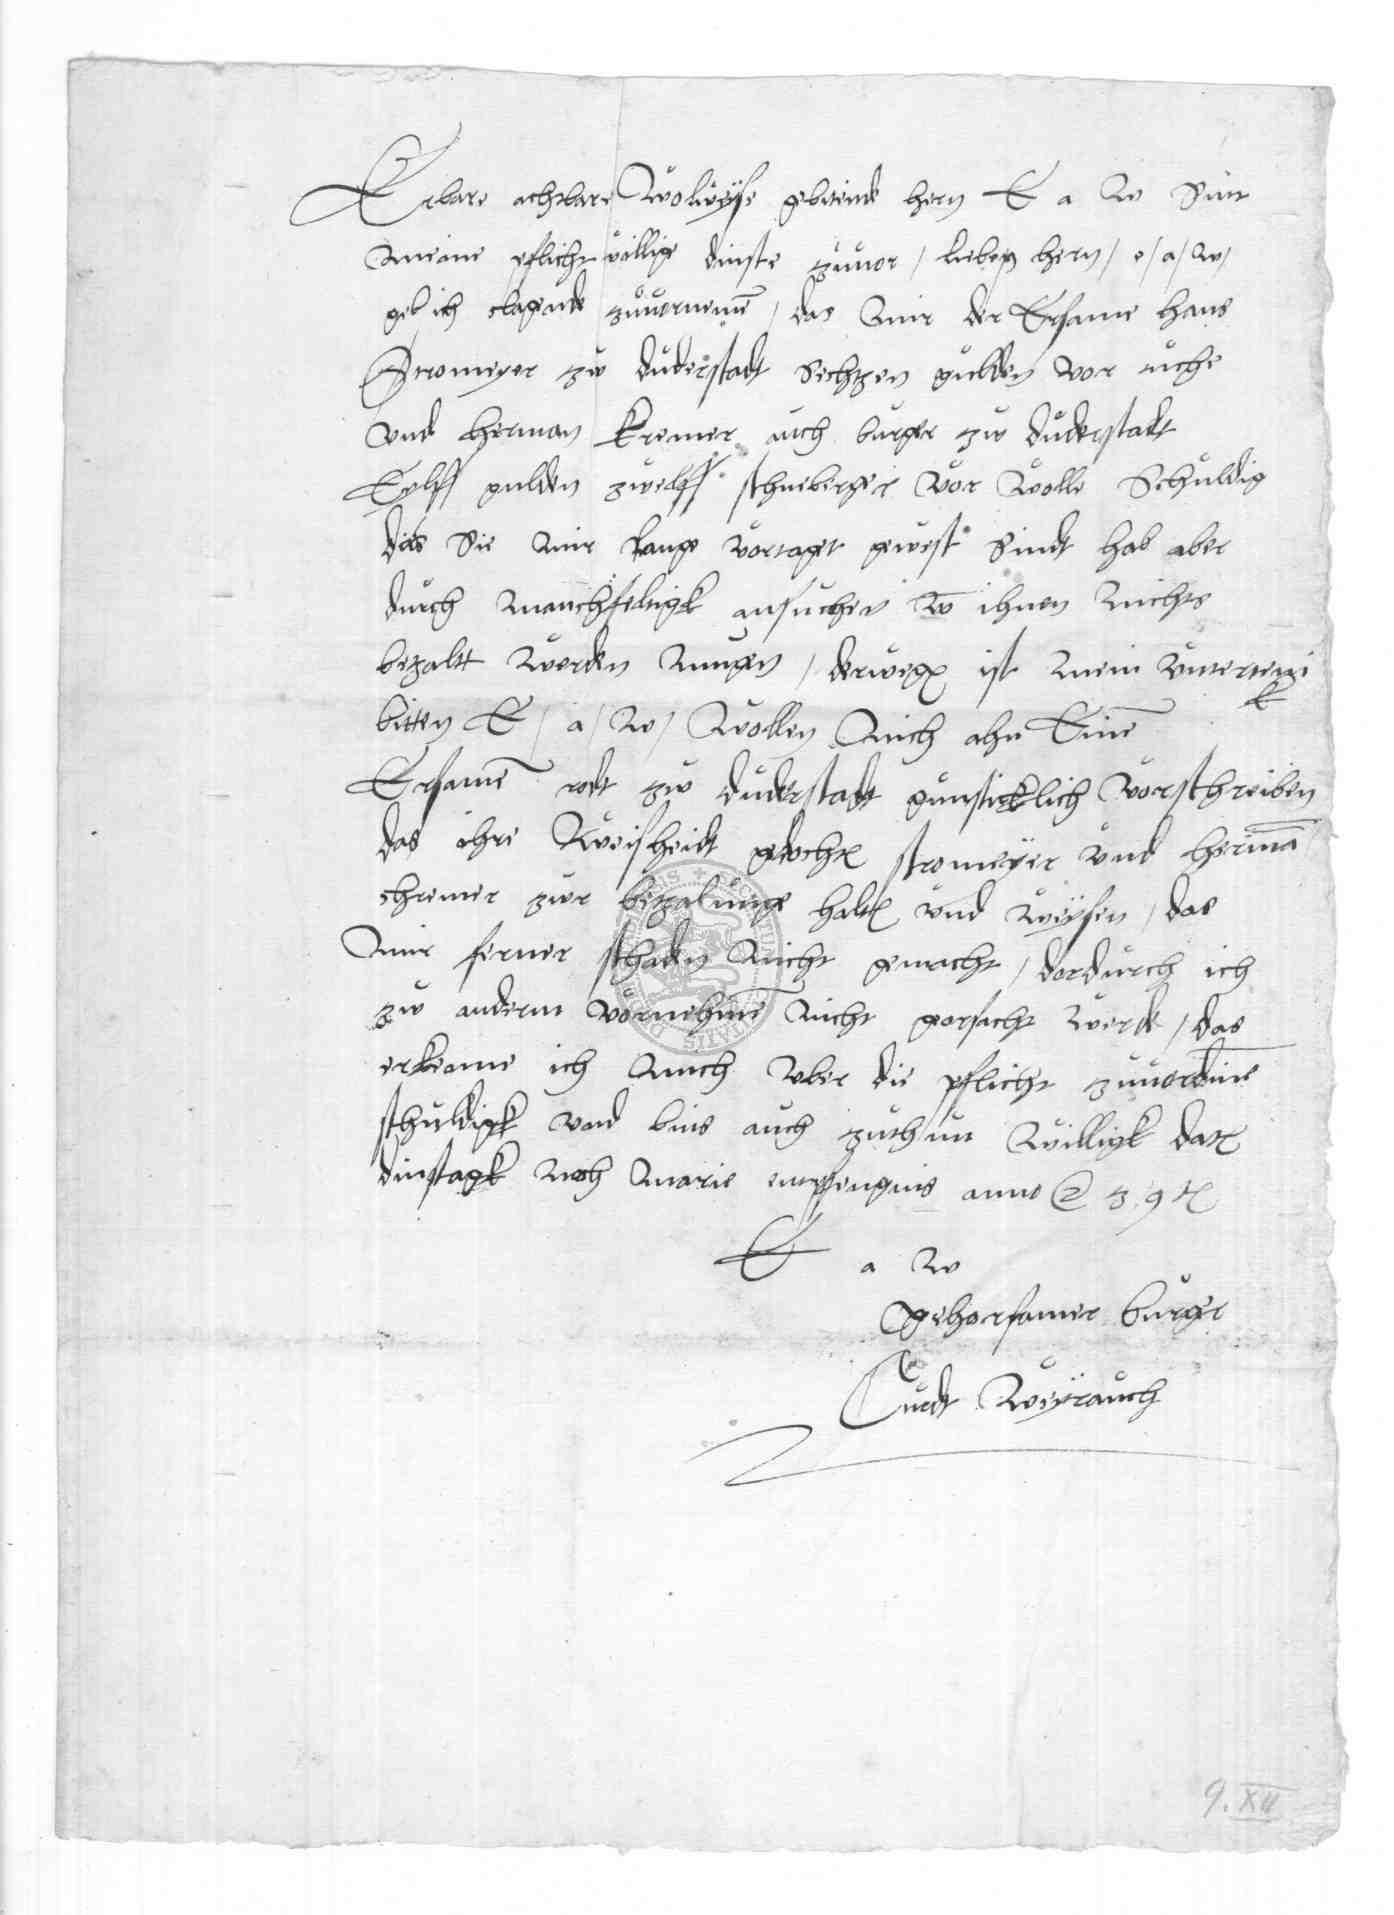 Erbare achtbare Wolweyse gebitende hern E a W Sint
Meine pflicht willige dinste zuuor / lieben hern / e / a / W /
geb ich clagende zuuornemē / das Mir der Ersame hans
Stromeyer zw duderstadt Sechtzen gulden vor
vnd herman kremer auch burger zw duderstadt
Eylff gulden zwelff schneberger vor wolle Schuldig
das Sie Mir lange vortaget gewest Sindt hab aber
durch Manchfeltigk ansuchen vō ihnen Nichts
bezaltt werden Mugen / derweg ist Mein untertenigk
bitten E / a / W / Wollen Mich ahn Einē
Ersamē rodt zw duderstadt gunsticklich vorschreiben
das ihre Weisheidt gedocht stromeyer vnd hermā
chremer zur bezalunge halt vnd weysen / das
Mir ferner schaden Nicht gemacht / dordurch ich
zw anderm vornehmē Nicht georsacht werde / das
erkenne ich Mich vber die pflicht zuuordine
schuldigk vnd bins auch zuthun Willigk dat
dinstagk Noch Marie empfengnis anno 39
E a W
gehorsamer burger
Curdt Weyrauch
9. XII